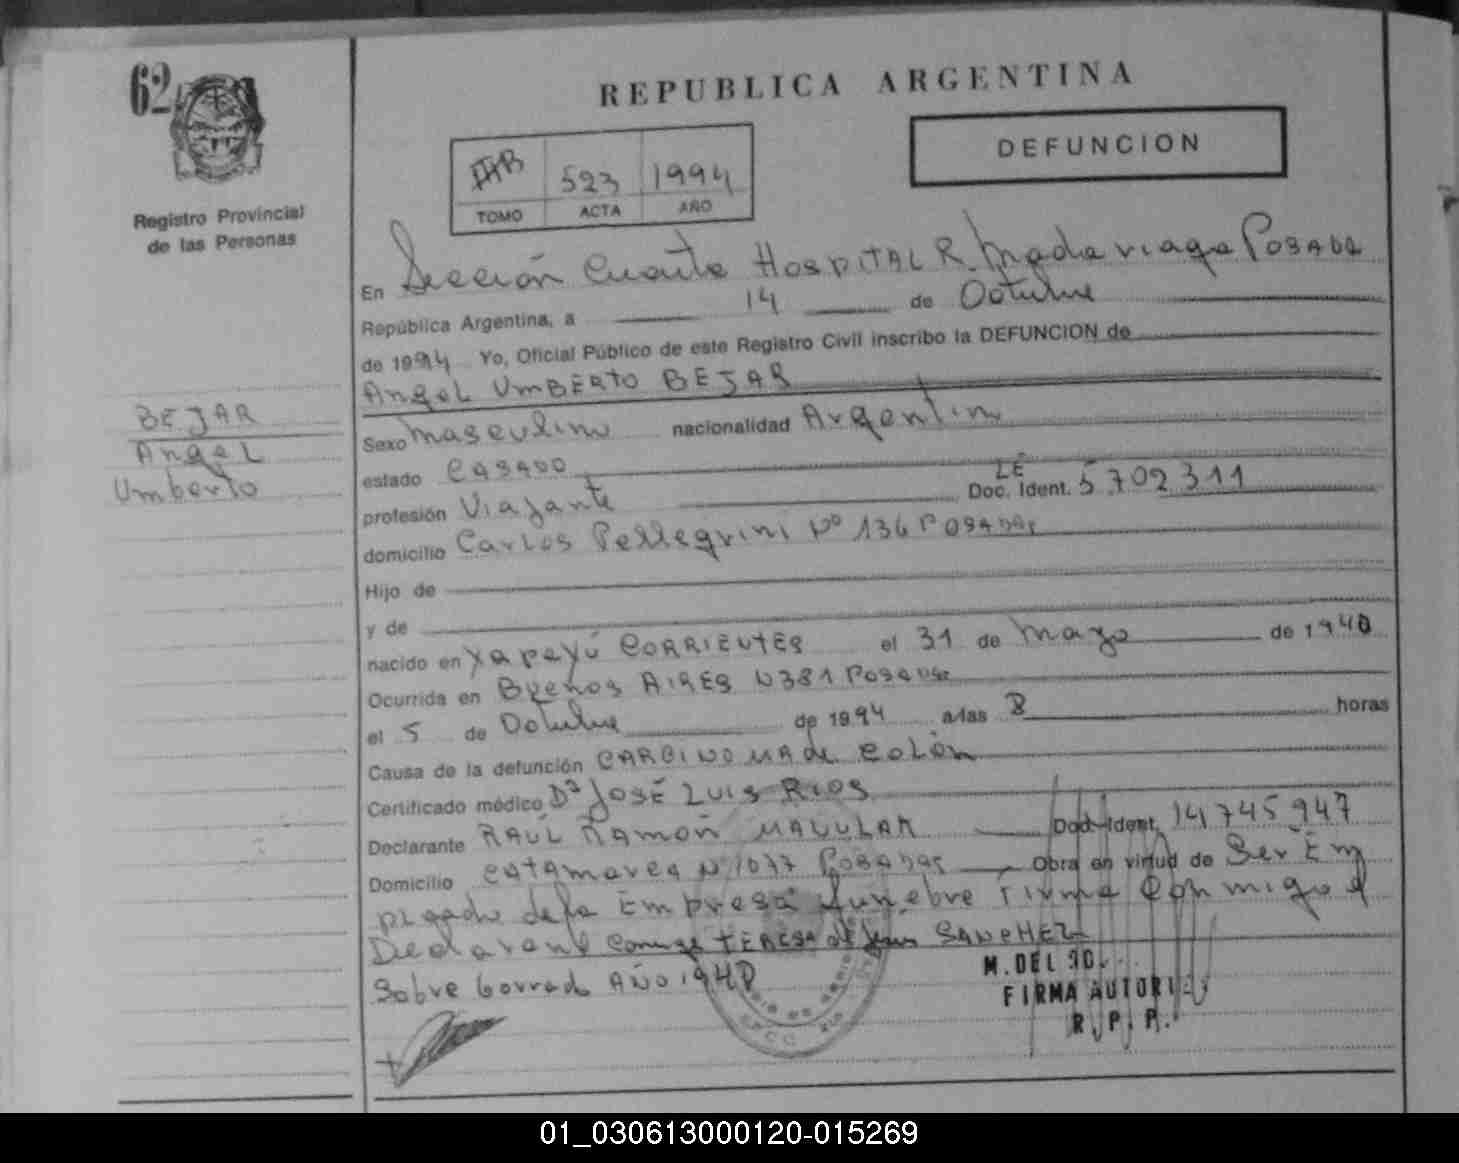 62
REPUBLICA ARGENTINA
DEFUNCION
523 1994
TOMO ACTA AÑO
Registro Provincial
de las Personas
En Sección Cuarta HOSPITAL R. Madariaga POSADAS
República Argentina, a 14 de Octubre
de 1994 Yo, Oficial Público de este Registro Civil inscribo la DEFUNCION de
Angel UmBERTO BEJAR
BEJAR
Angel
Umberto
Sexo masculino nacionalidad Argentina
estado CASADO
profesión Viajante LE Doc. Ident. 5702311
domicilio Carlos Pellegrini Nº 136 POSADAS
Hijo de
y de
nacido en Yapeyú CORRIENTES el 31 de mayo de 1940
Ocurrida en Buenos AIRES N 381 Posadas
el 5 de Octubre de 1994 a las 8 horas
Causa de la defunción CARCINOMA de Colón
Certificado médico Dr JOSÉ LUIS RIOS
Declarante RAÚL RAMÓN Doc. Ident. 14745947
Domicilio CATAMARCA Nº 1077 POSADAS Obra en virtud de Ser Em
pleado de la Empresa funebre Firma Conmigo el
Declarante Conyuge TERESA de Jesús SANCHEZ
Sobre borrado AÑO 1940
M. DEL
FIRMA AUTORI
R. P. P.
01_030613000120-015269